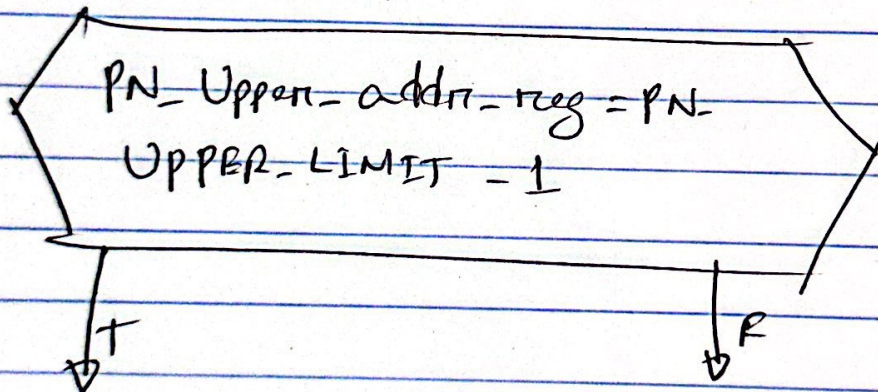 PN_Upper_addr_reg = PN_
UPPER_LIMIT - 1
T
F